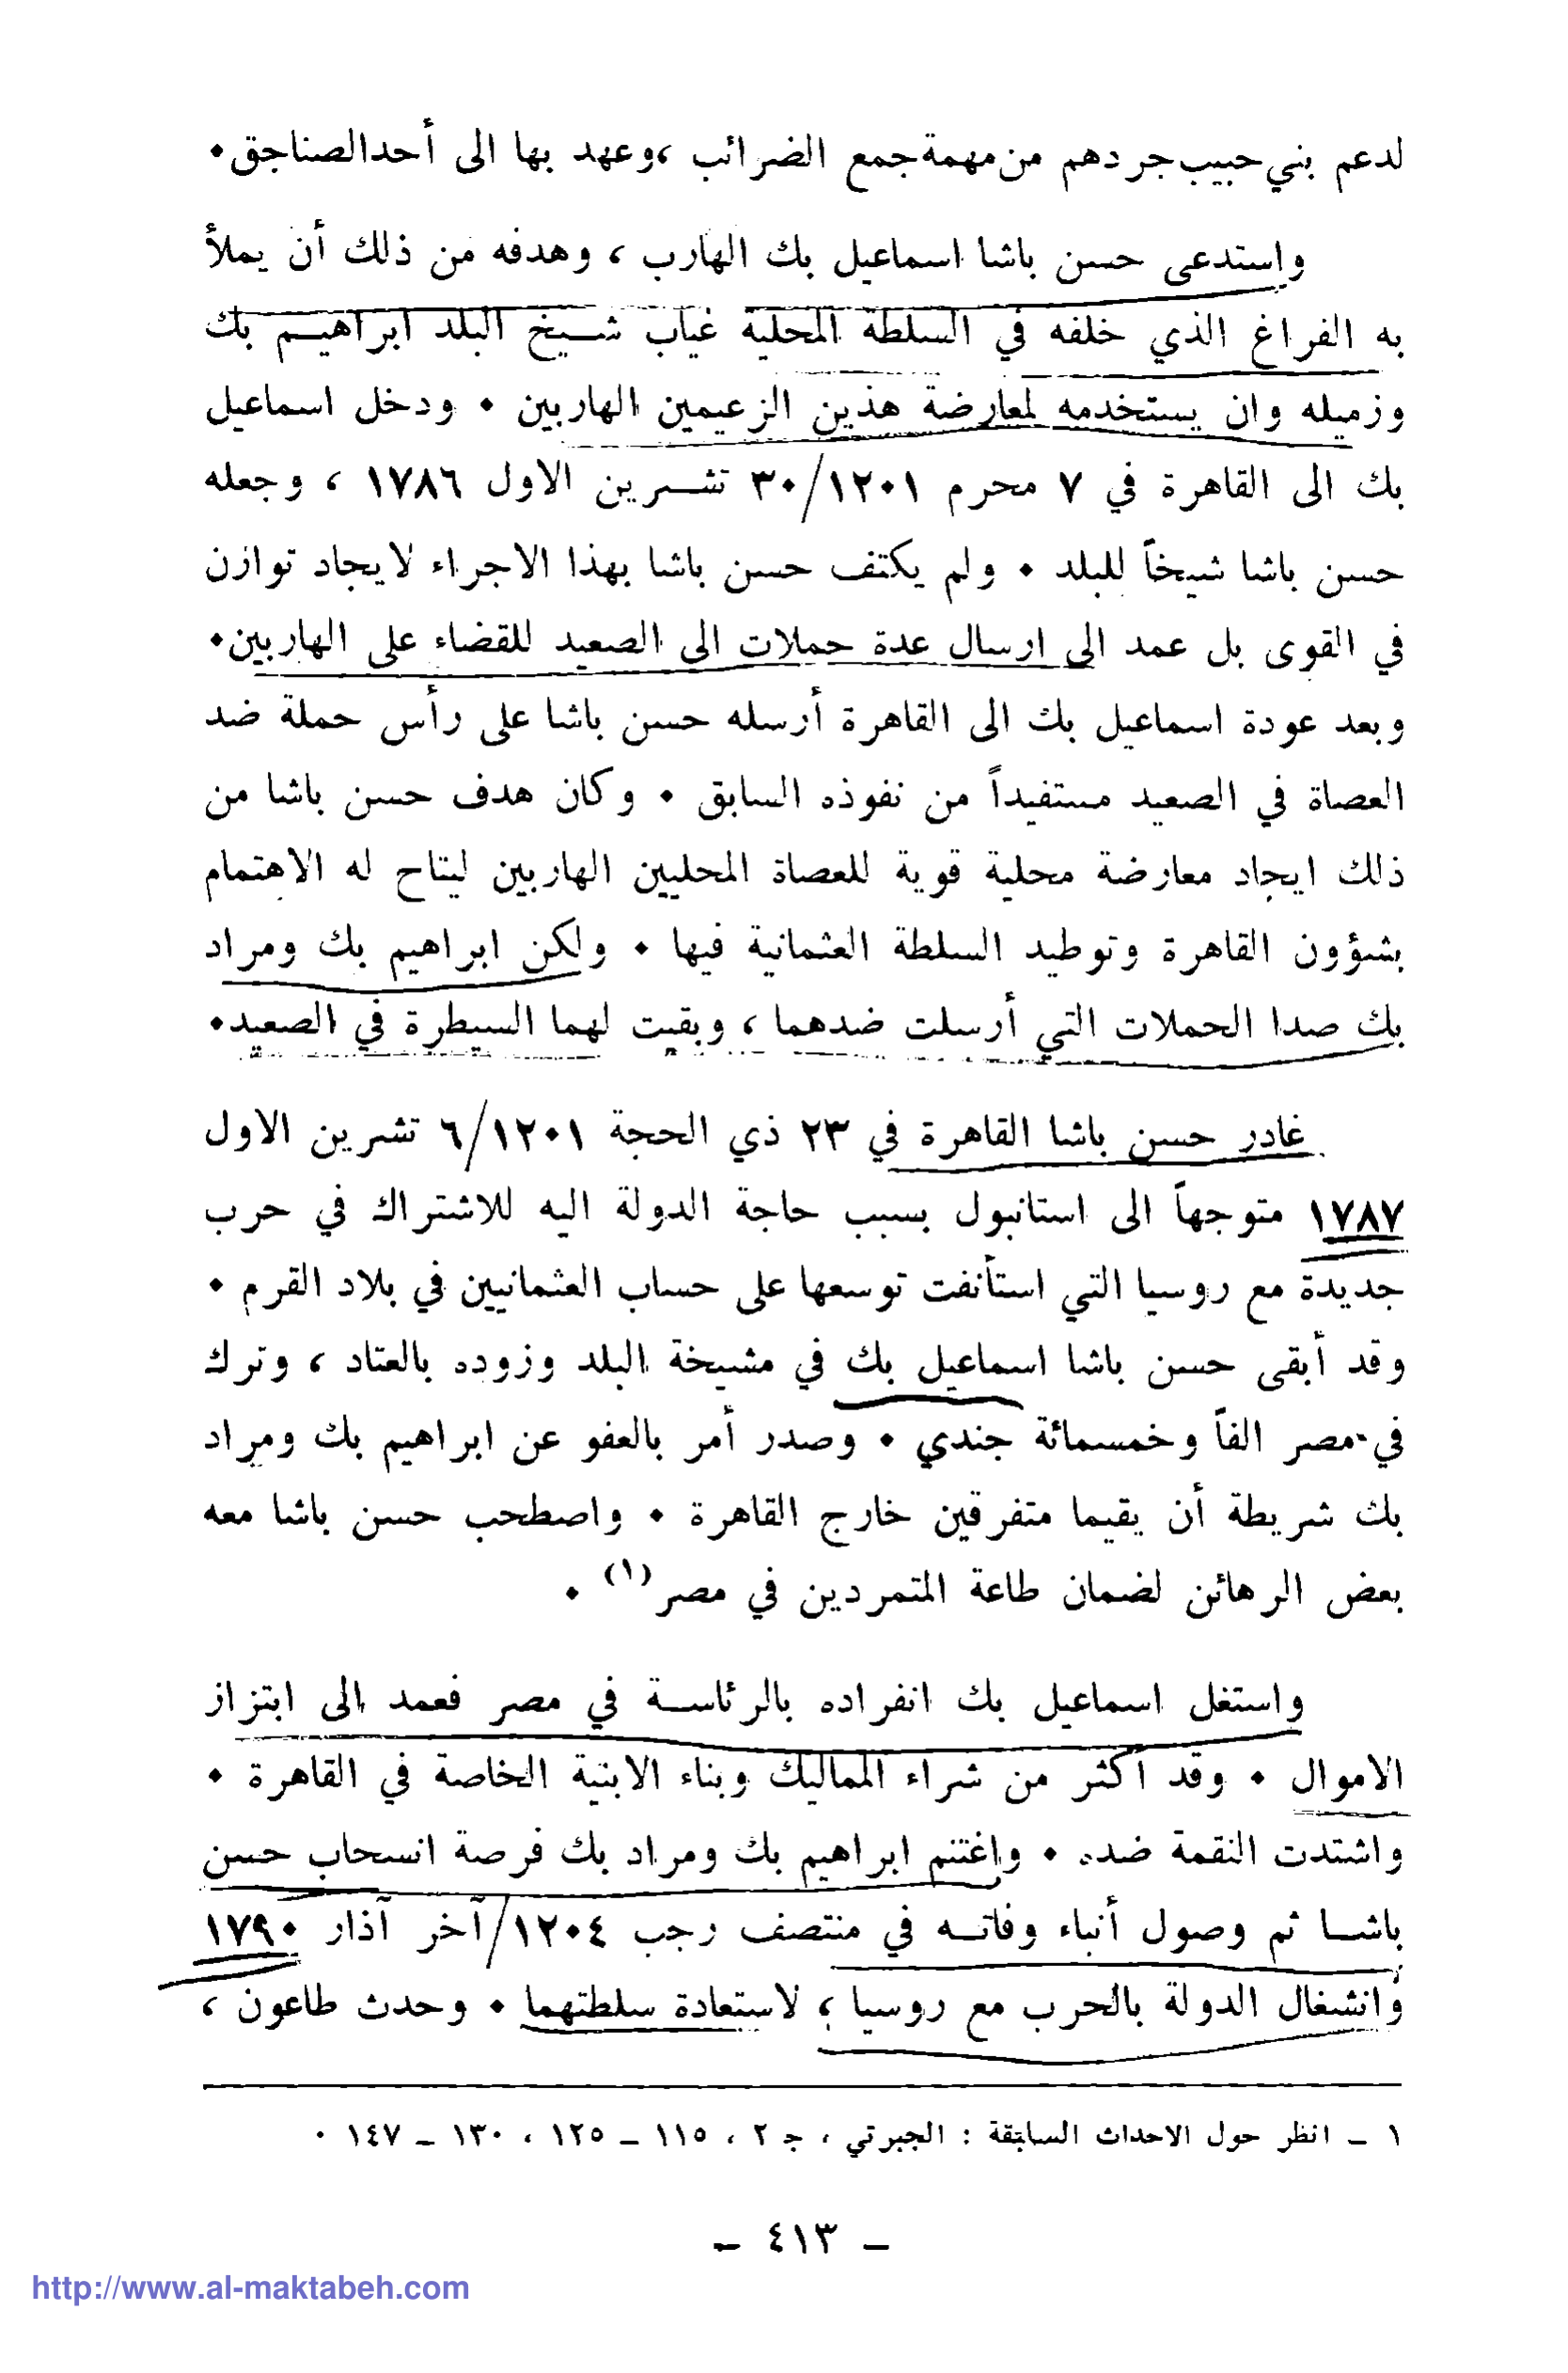 لدعم بني حبيب جردهم من مهمة جمع الضرائب ، وعهد بها الى أحد الصناجق .
واستدعى حسن باشا اسماعيل بك الهارب ، وهدفه من ذلك أن يملأ
به الفراغ الذي خلفه في السلطة المحلية غياب شيخ البلد ابراهيم بك
وزميله وان يستخدمه لمعارضة هذين الزعيمين الهاربين . ودخل اسماعيل
بك الى القاهرة في ٧ محرم ١٢٠١/٣٠ تشرين الاول ١٧٨٦ ، وجعله
حسن باشا شيخاً للبلد . ولم يكتف حسن باشا بهذا الاجراء لايجاد توازن
في القوى بل عمد الى ارسال عدة حملات الى الصعيد للقضاء على الهاربين .
وبعد عودة اسماعيل بك الى القاهرة أرسله حسن باشا على رأس حملة ضد
العصاة في الصعيد مستفيداً من نفوذه السابق . وكان هدف حسن باشا من
ذلك ايجاد معارضة محلية قوية للعصاة المحليين الهاربين ليتاح له الاهتمام
بشؤون القاهرة وتوطيد السلطة العثمانية فيها . ولكن ابراهيم بك ومراد
بك صدا الحملات التي أرسلت ضدهما ، وبقيت لهما السيطرة في الصعيد .
غادر حسن باشا القاهرة في ٢٣ ذي الحجة ١٢٠١/٦ تشرين الاول
١٧٨٧ متوجهاً الى استانبول بسبب حاجة الدولة اليه للاشتراك في حرب
جديدة مع روسيا التي استأنفت توسعها على حساب العثمانيين في بلاد القرم .
وقد أبقى حسن باشا اسماعيل بك في مشيخة البلد وزوده بالعتاد ، وترك
في مصر الفاً وخمسمائة جندي . وصدر أمر بالعفو عن ابراهيم بك ومراد
بك شريطة أن يقيما متفرقين خارج القاهرة . واصطحب حسن باشا معه
بعض الرهائن لضمان طاعة المتمردين في مصر (١) .
واستغل اسماعيل بك انفراده بالرئاسة في مصر فعمد الى ابتزاز
الاموال . وقد أكثر من شراء المماليك وبناء الابنية الخاصة في القاهرة .
واشتدت النقمة ضده . واغتنم ابراهيم بك ومراد بك فرصة انسحاب حسن
باشا ثم وصول أنباء وفاته في منتصف رجب ١٢٠٤/آخر آذار ١٧٩٠
وانشغال الدولة بالحرب مع روسيا ، لاستعادة سلطتهما . وحدث طاعون ،
١ ـ انظر حول الاحداث السابقة : الجبرتي ، ج ٢ ، ١١٥ ـ ١٢٥ ، ١٣٠ ـ ١٤٧ .
ـ ٤١٣ ـ
http://www.al-maktabeh.com